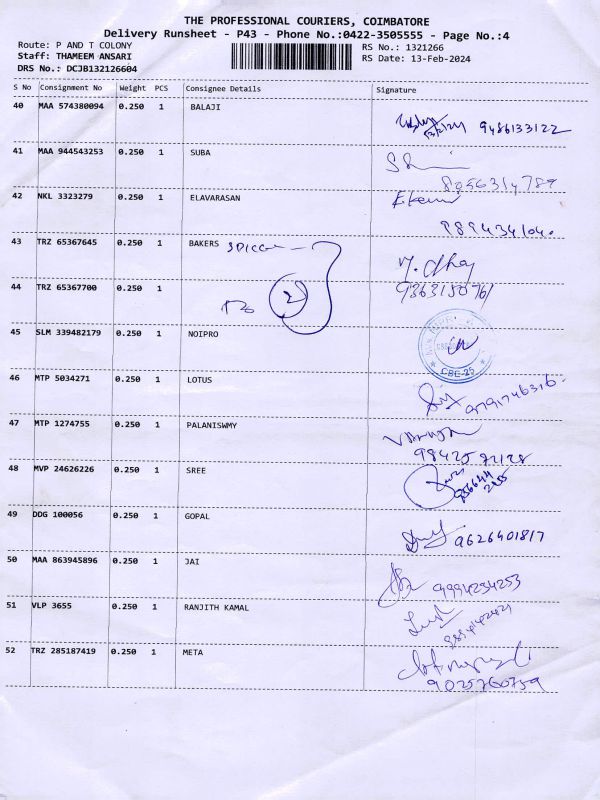 THE PROFESSIONAL COURIERS, COIMBATORE
Delivery Runsheet - P43 - Phone No.:0422-3505555 - Page No.:4
Route: P AND T COLONY RS No.: 1321266
Staff: THAMEEM ANSARI RS Date: 13-Feb-2024
DRS No.: DCJB132126604
S No Consignment No Weight PCS Consignee Details Signature
40 MAA 574380094 0.250 1 BALAJI
9486133122
41 MAA 944543253 0.250 1 SUBA
8056314789
42 NKL 3323279 0.250 1 ELAVARASAN
989434104.
43 TRZ 65367645 0.250 1 BAKERS
44 TRZ 65367700 0.250 1 2
9363150761
45 SLM 339482179 0.250 1 NOIPRO
CBE-25
46 MTP 5034271 0.250 1 LOTUS
9791746316.
47 MTP 1274755 0.250 1 PALANISWMY
98425 72128
48 MVP 24626226 0.250 1 SREE
49 DDG 100056 0.250 1 GOPAL
9626401817
50 MAA 863945896 0.250 1 JAI
9994234253
51 VLP 3655 0.250 1 RANJITH KAMAL
52 TRZ 285187419 0.250 1 META
9025760759